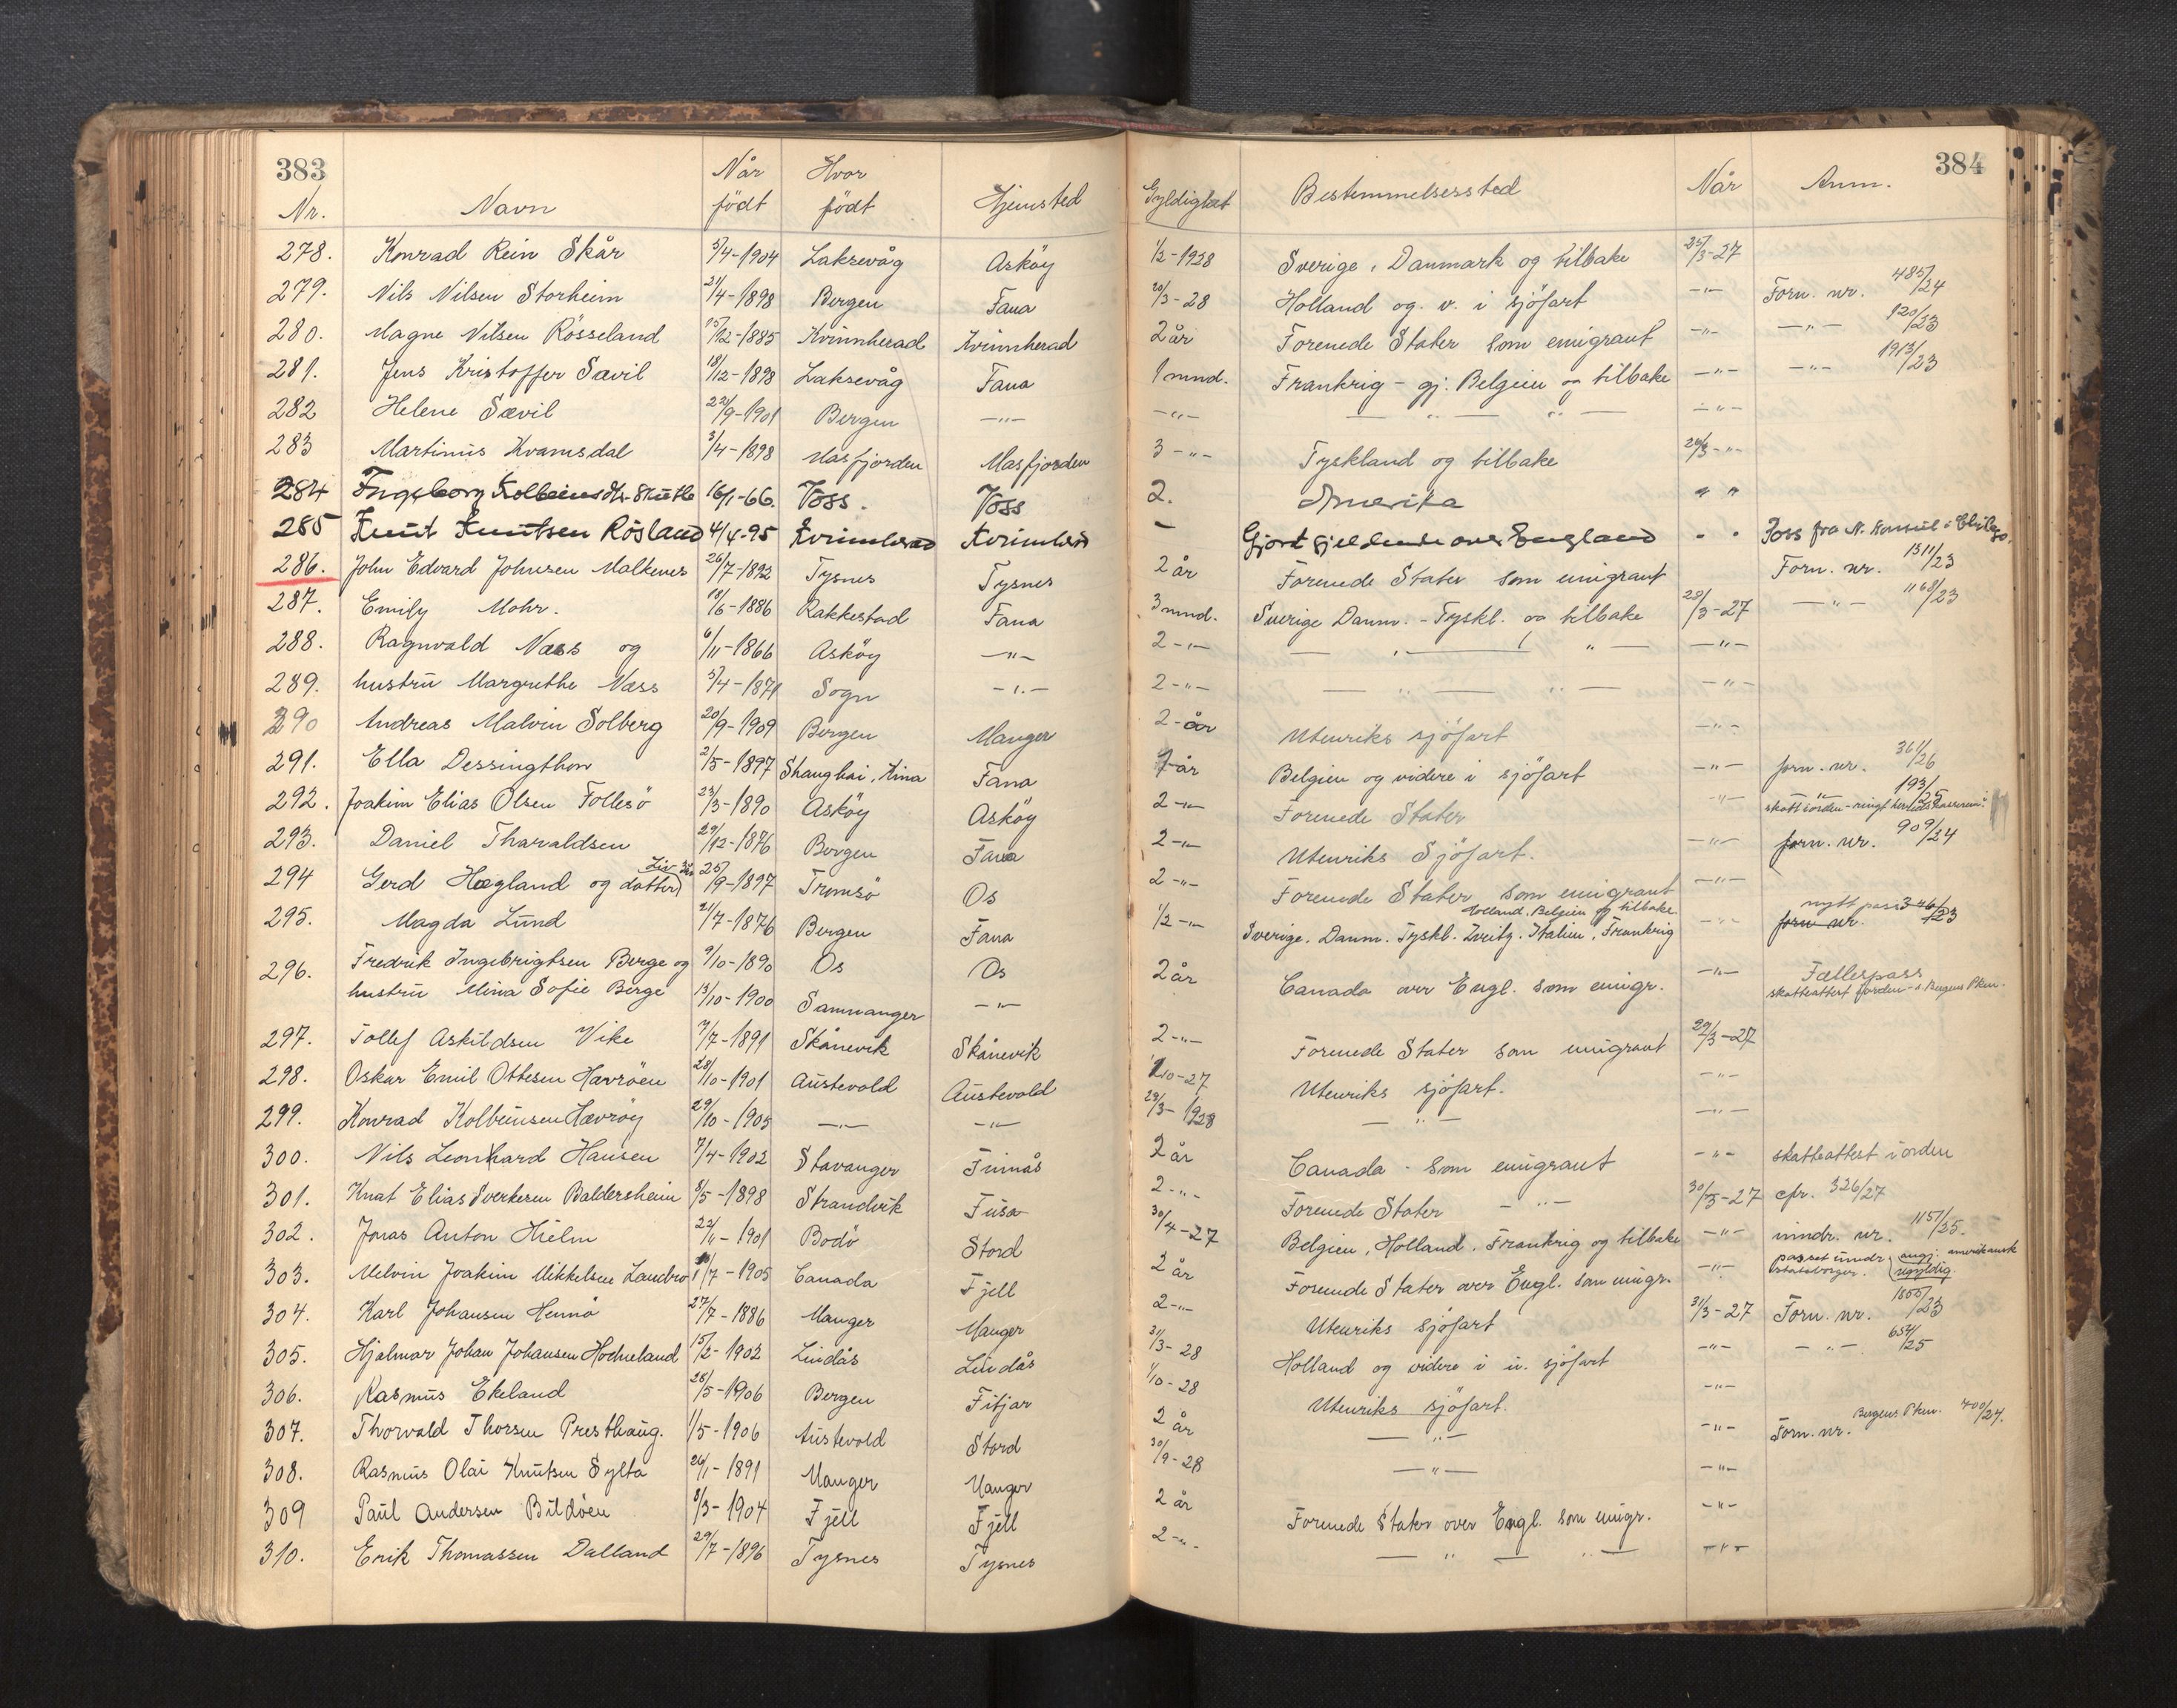 383
384
Nr. Navn Når født Hvor født Hjemsted Gyldighet Bestemmelsessted Når Anm.
278. Konrad Rein Skår 5/4-1904 Laksevåg Askøy 1/2-1928 Sverige, Danmark og tilbake 25/3-27
279. Nils Nilsen Storheim 21/4-1898 Bergen Fana 20/3-28 Holland og. v. i sjöfart -"- Forn. nr. 485/24
280. Magne Nilsen Rösseland 15/12-1885 Kvinnherad Kvinnherad 2 år Forenede Stater som emigrant -"- -"- 920/23
281. Jens Kristoffer Sævil 18/12-1898 Laksevåg Fana 1 mnd. Frankrig - gj. Belgien og tilbake -"- -"- 1913/23
282 Helene Sævil 22/9-1901 Bergen -"- -"- -"- -"- -"-
283 Martinius Kvamsdal 3/4-1898 Masfjorden Masfjorden 3 -"- Tyskland og tilbake 26/3 -"-
284 Ingeborg Kolbeinsdtr. 16/1-66. Voss. Voss 2. Amerika " "
285 Knut Knutsen Rösland 4/4-95 Kvinnherad Kvinnherad - Gjort gjeldende over England " " Pass fra N. Konsul i Chicago.
286. John Edvard Johnsen Malkenes 26/7-1892 Tysnes Tysnes 2 år Forenede Stater som emigrant Forn. nr. 1311/23
287. Emily Mohr. 18/6-1886 Rakkestad Fana 3 mnd. Sverige Danm. - Tyskl. og tilbake 28/3-27 -"- 1168/23
288. Ragnvald Næss og 6/11-1866 Asköy -"- 2 -"- -"- -"- -"-
289. hustru Margrethe Næss 5/4-1871 Sogn -"- 2 -"- -"- -"- -"-
290 Andreas Malvin Solberg 20/9-1909 Bergen Manger 2 år Utenriks sjöfart -"-
291. Ella Dessingthon 2/5-1897 Shanghai, Kina Fana år Belgien og videre i sjöfart -"- forn. nr. 361/26
292. Joakim Elias Olsen Follesö 23/3-1890 Asköy Asköy 2 -"- Forenede Stater -"- -"- 193/25
skatt i orden - ringt herredskassereren
293. Daniel Tharaldsen 29/12-1876 Bergen Fana 2 -"- Utenriks Sjöfart. -"- forn. nr. 909/24
294 Gerd Hægland og datter Liv 25/9-1897 Tromsö Os 2 -"- Forenede Stater som emigrant -"-
295. Magda Lund 21/7-1876 Bergen Fana 1/2 -"- Holland, Belgien og tilbake -"- nytt pass 346/23
Sverige. Danm. Tyskl. Italien, Frankrig forn nr.
296. Fredrik Ingebrigtsen Berge og 9/10-1890 Os Os 2 år Canada over Engl. som emigr. -"- Fællespass
hustru Mina Sofie Berge 13/10-1900 Samnanger -"- skatteattest i orden
297. Tollef Askildsen Vike 7/7-1891 Skånevik Skånevik 2 -"- Forenede Stater som emigrant 29/3-27
298. Oskar Emil Ottesen Havröen 28/10-1901 Austevold Austevold 1/10-27 Utenriks sjöfart. -"-
299. Konrad Kolbeinsen Hævröy 29/10-1905 -"- -"- 29/3-1928 -"- -"-
300. Nils Leonhard Hansen 7/4-1902 Stavanger Finnås 2 år Canada - som emigrant -"- skatteattest i orden
301. Knut Elias Sverkesen Baldersheim 8/5-1898 Strandvik Fusa 2 -"- Forenede Stater -"- 30/3-27 cfr. 326/27
302. Jonas Anton Hielm 22/11-1901 Bodö Stord 30/4-27 Belgien, Holland, Frankrig og tilbake -"- inndr. nr. 1157/25.
303. Melvin Joakim Mikkelsen Landro /7-1905 Canada Fjell 2 år Forenede Stater over Engl. som emigr. -"- passet inndr. angj. amerikansk
statsborger. ugyldig.
304. Karl Johansen Hennö 27/7-1886 Manger Manger 2 -"- Utenriks sjöfart 31/3-27 Forn. nr. 1855/23
305. Hjalmar Johan Johansen Hodneland 15/2-1902 Lindås Lindås 31/3-28 Holland og videre i u. sjöfart -"- -"- 654/25
306. Rasmus Ekeland 28/5-1906 Bergen Fitjar 1/10-28 Utenriks sjöfart. -"-
307. Thorvald Thorsen Presthaug. 1/5-1906 Austevold Stord 2 år -"- -"- Forn. nr. Bergens Pkm. 400/24.
308. Rasmus Olai Knutsen Sylta 26/1-1891 Manger Manger 30/9-28 -"- -"-
309 Paul Andersen Bildöen 8/3-1904 Fjell Fjell 2 år Forenede Stater over Engl. som emigr. -"-
310. Erik Thomassen Dalland 29/7-1896 Tysnes Tysnes 2 -"- -"- -"- -"-